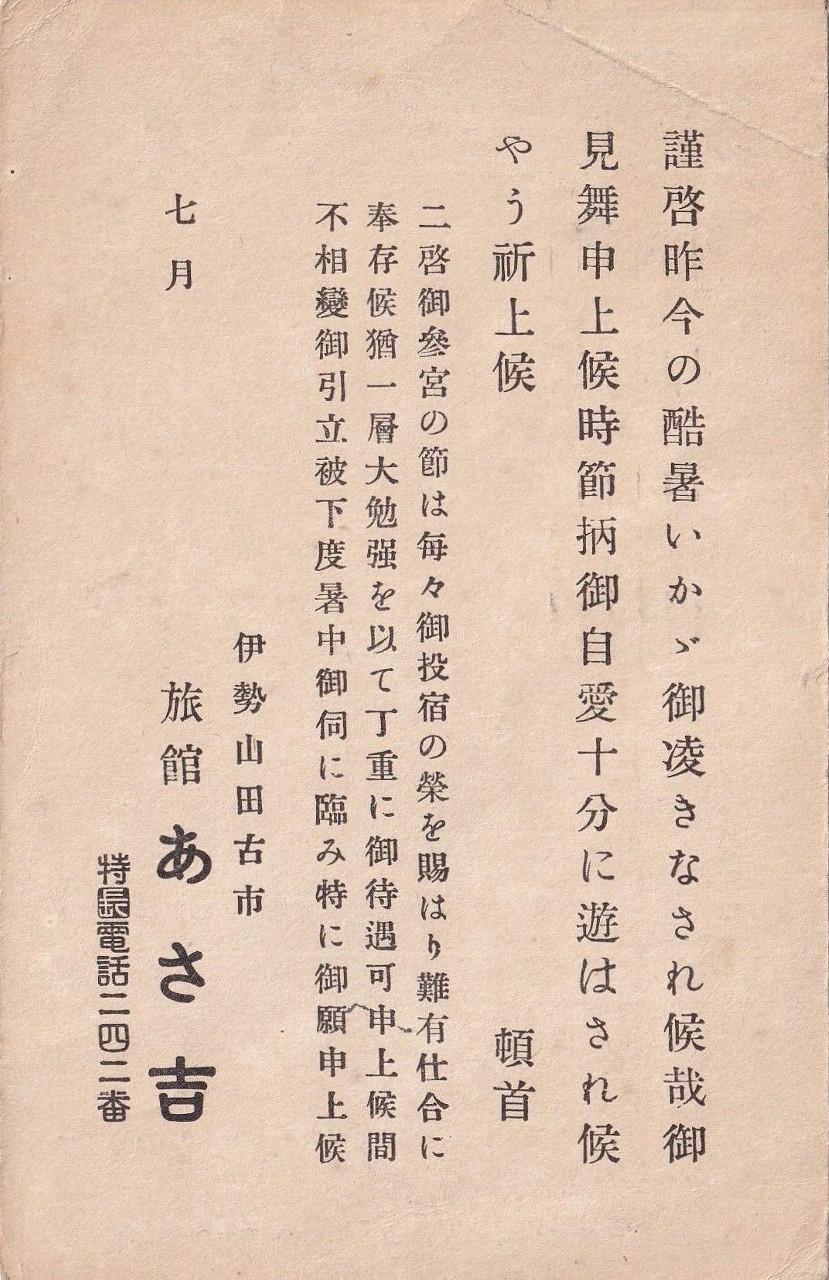 謹啓昨今の酷暑いかゞ御凌きなされ候哉御
見舞申上候時節柄御自愛十分に遊はされ候
やう祈上候　頓首
二啓御參宮の節は毎々御投宿の榮を賜はり難有仕合に
奉存候猶一層大勉强を以て丁重に御待遇可申上候間
不相變御引立被下度暑中御伺に臨み特に御願申上候
七月
伊勢山田古市
旅館 あさ吉
特長電話二四二番